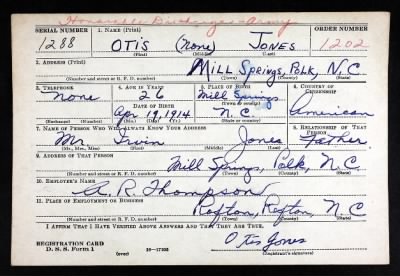 Honorable Discharge - Army
SERIAL NUMBER 1. NAME (Print) ORDER NUMBER
1288 OTIS (None) JONES 1202
(First) (Middle) (Last)
2. ADDRESS (Print)
MILL Springs, Polk, N.C
(Number and street or R. F. D. number) (Town) (County) (State)
3. TELEPHONE 4. AGE IN YEARS 5. PLACE OF BIRTH 6. COUNTRY OF CITIZENSHIP
None 26 Mill Springs
DATE OF BIRTH (Town or county)
Apr 19, 1914 N.C. American
(Exchange) (No.) (Mo.) (Day) (Yr.) (State or country)
7. NAME OF PERSON WHO WILL ALWAYS KNOW YOUR ADDRESS 8. RELATIONSHIP OF THAT PERSON
Mr Irvin Jones Father
(Mr., Mrs., Miss) (First) (Middle) (Last)
9. ADDRESS OF THAT PERSON
Mill Springs, Polk, N.C.
(Number and street or R. F. D. number) (Town) (County) (State)
10. EMPLOYER'S NAME
R. Thompson
11. PLACE OF EMPLOYMENT OR BUSINESS
N.C
(Number and street or R. F. D. number) (Town) (County) (State)
I AFFIRM THAT I HAVE VERIFIED ABOVE ANSWERS AND THAT THEY ARE TRUE.
REGISTRATION CARD
D. S. S. Form 1 (over) Otis Jones
(Registrant's signature)